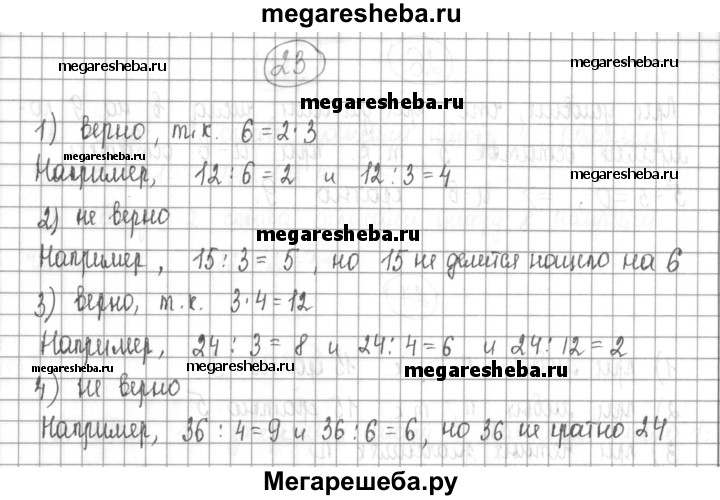 megaresheba.ru
23
megaresheba.ru
megaresheba.ru
megaresheba.ru
1) верно, т.к. 6 = 2·3
megaresheba.ru
Например, 12 : 6 = 2 и 12 : 3 = 4
megaresheba.ru
2) не верно
megaresheba.ru
Например, 15 : 3 = 5, но 15 не делится нацело на 6
3) верно, т.к. 3·4 = 12
Например, 24 : 3 = 8 и 24 : 4 = 6 и 24 : 12 = 2
megaresheba.ru
megaresheba.ru
megaresheba.ru
4) не верно
Например, 36 : 4 = 9 и 36 : 6 = 6, но 36 не кратно 24
Мегарешеба.ру